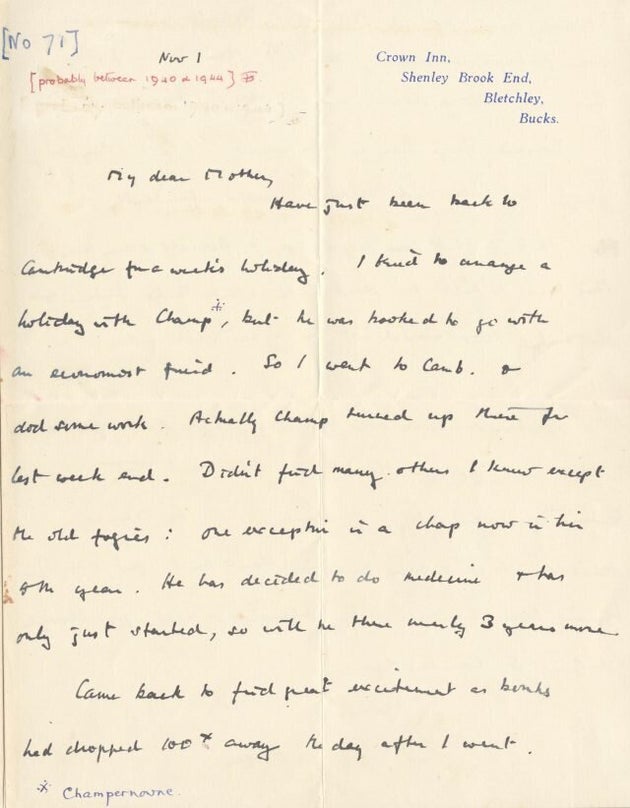 [No 71]
Nov 1
[probably between 1940 & 1944]
Crown Inn,
Shenley Brook End,
Bletchley,
Bucks.
My dear Mother,
Have just been back to
Cambridge for a week's holiday. I tried to arrange a
holiday with Champ*, but he was booked to go with
an economist friend. So I went to Camb. &
did some work. Actually Champ turned up there for
last week end. Didn't find many others I knew except
the old fogies: one exception is a chap now in his
year. He has decided to do medicine & has
only just started, so will be there nearly 3 years more.
Came back to find great excitement as bombs
had dropped 100 away the day after I went.
* Champernowne.